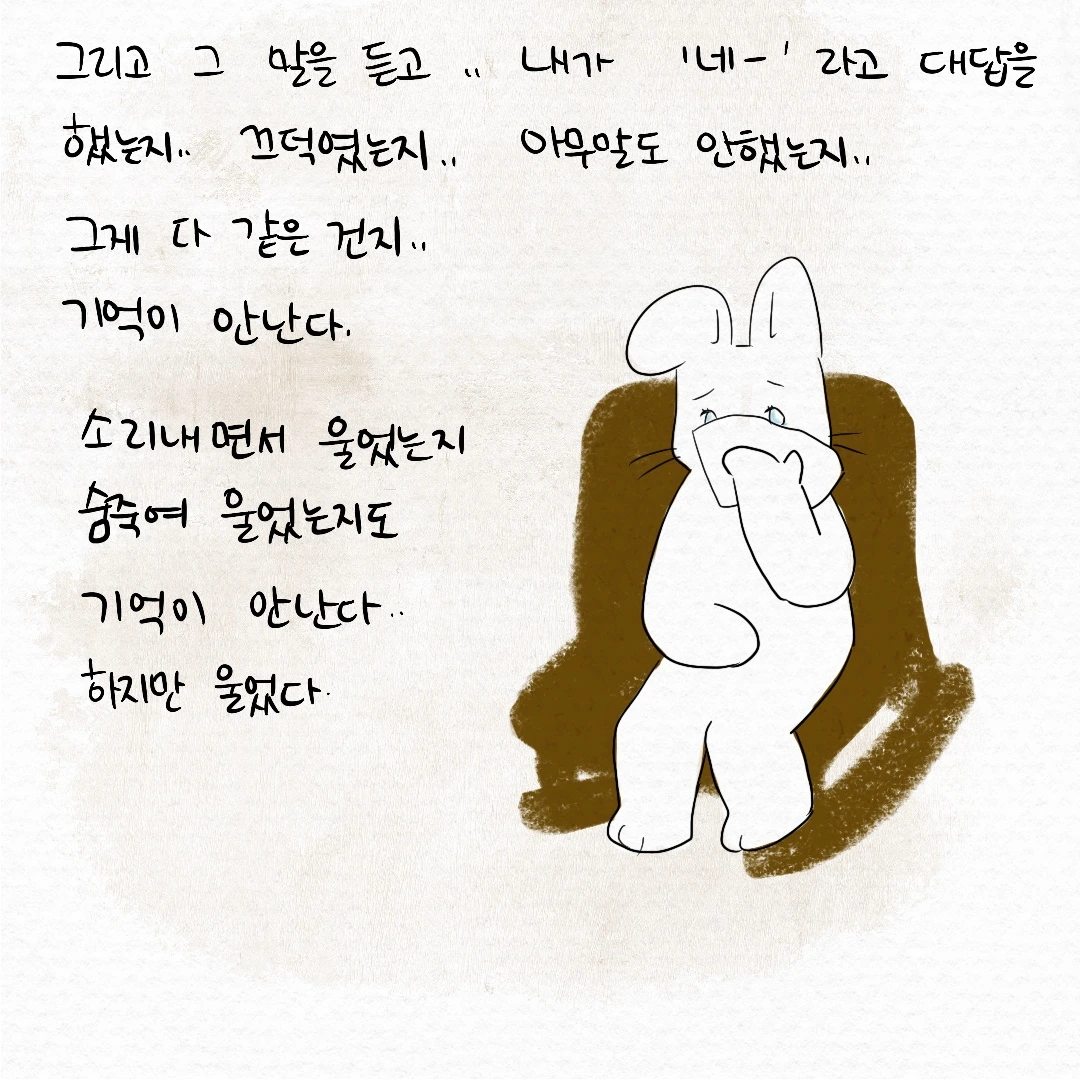 그리고 그 말을 듣고 .. 내가 '네-' 라고 대답을
했는지.. 끄덕였는지.. 아무말도 안했는지..
그게 다 같은 건지..
기억이 안난다.
소리내면서 울었는지
숨죽여 울었는지도
기억이 안난다..
하지만 울었다.